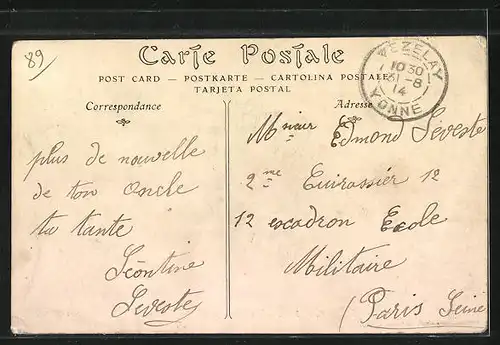 89
Carte Postale
POST CARD — POSTKARTE — CARTOLINA POSTALE
TARJETA POSTAL
VEZELAY
10 30
31-8
14
YONNE
Correspondance
plus de nouvelle
de ton oncle
ta tante
Léontine
Leveste
Adresse
Msieur Edmond Leveste
2me Cuirassier 12
12 escadron Ecole
Militaire
(Paris Seine